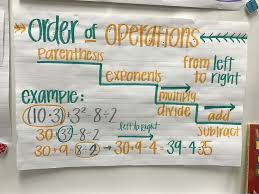 order of operations
Parenthesis
exponents
from left
to right
multiply
divide
add
subtract
example:
(10·3)+3²-8÷2
30+(3²)-8÷2
left to right
30+9-(8÷2)→30+9-4→39-4=35